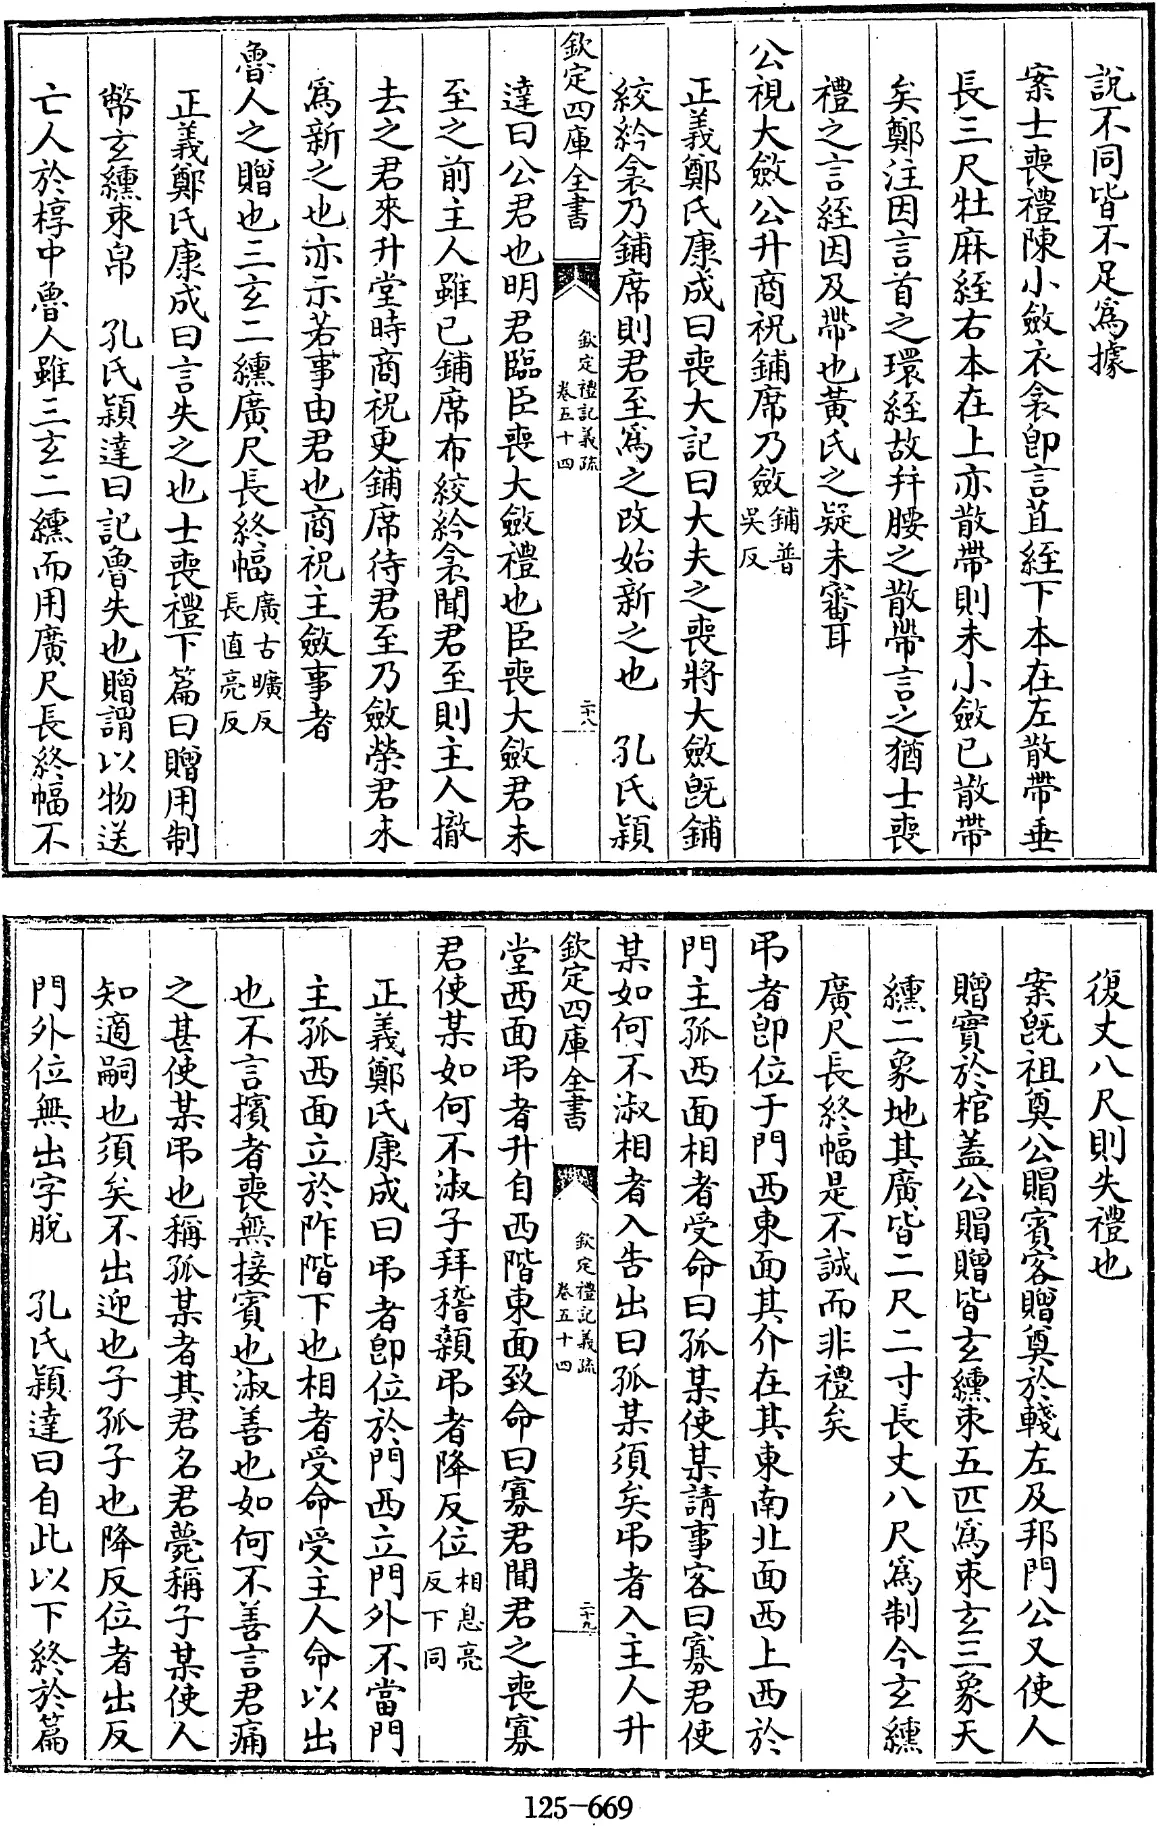 說不同皆不足為據
案士喪禮陳小斂衣衾卽言苴絰下本在左散帶垂
長三尺牡麻絰右本在上亦散帶則未小斂已散帶
矣鄭注因言首之環絰故并腰之散帶言之猶士喪
禮之言絰因及帶也黃氏之疑未審耳
公視大斂公升商祝鋪席乃斂鋪普吳反
正義鄭氏康成曰喪大記曰大夫之喪將大斂旣鋪
絞紟衾乃鋪席則君至為之改始新之也 孔氏穎
欽定四庫全書
欽定禮記義疏
卷五十四
二十八
達曰公君也明君臨臣喪大斂禮也臣喪大斂君未
至之前主人雖已鋪席布絞紟衾聞君至則主人撤
去之君來升堂時商祝更鋪席待君至乃斂榮君來
為新之也亦示若事由君也商祝主斂事者
魯人之贈也三玄二纁廣尺長終幅廣古曠反長直亮反
正義鄭氏康成曰言失之也士喪禮下篇曰贈用制
幣玄纁束帛 孔氏穎達曰記魯失也贈謂以物送
亡人於椁中魯人雖三玄二纁而用廣尺長終幅不
復丈八尺則失禮也
案旣祖奠公賵賓客贈奠於輚左及邦門公又使人
贈實於棺蓋公賵贈皆玄纁束五匹為束玄三象天
纁二象地其廣皆二尺二寸長丈八尺為制今玄纁
廣尺長終幅是不誠而非禮矣
弔者卽位于門西東面其介在其東南北面西上西於
門主孤西面相者受命曰孤某使某請事客曰寡君使
某如何不淑相者入告出曰孤某須矣弔者入主人升
欽定四庫全書
欽定禮記義疏
卷五十四
二十九
堂西面弔者升自西階東面致命曰寡君聞君之喪寡
君使某如何不淑子拜稽顙弔者降反位相息亮反下同
正義鄭氏康成曰弔者卽位於門西立門外不當門
主孤西面立於阼階下也相者受命受主人命以出
也不言擯者喪無接賓也淑善也如何不善言君痛
之甚使某弔也稱孤某者其君名君薨稱子某使人
知適嗣也須矣不出迎也子孤子也降反位者出反
門外位無出字脫 孔氏穎達曰自此以下終於篇
125-669